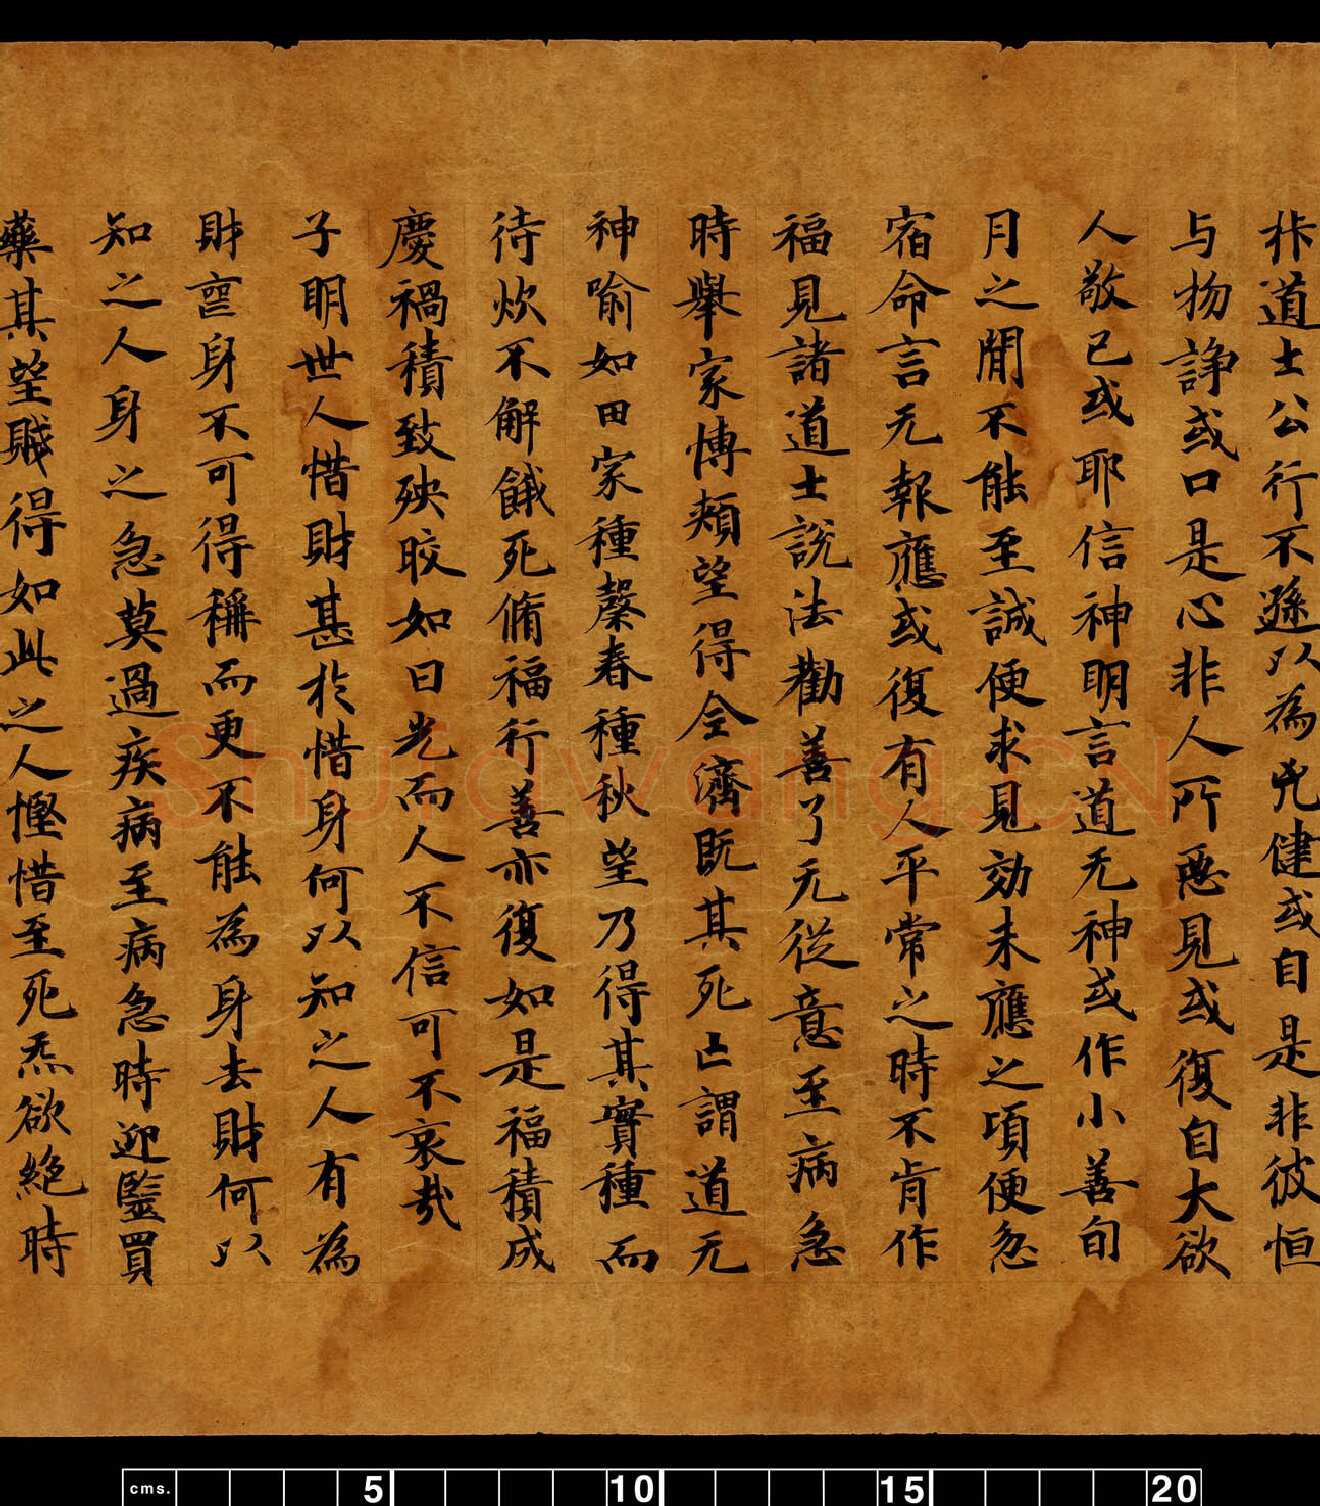 杵道士公行不遜以為光健或自是非彼恒
与物諍或口是心非人所惡見或復自大欲
人敬已或耶信神明言道无神或作小善旬
月之閒不能至誠便求見効未應之頃便怠
宿命言无報應或復有人平常之時不肯作
福見諸道士説法勸善了无從意至病急
時舉家慱頰望得全濟既其死亡謂道无
神喻如田家種䅽春種秋望乃得其實種而
待炊不解餓死脩福行善亦復如是福積成
慶禍積致殃皎如日光而人不信可不哀哉
子明世人惜財甚於惜身何以知之人有為
財喪身不可得稱而更不能為身去財何以
知之人身之急莫過疾病至病急時迎毉買
藥其望賤得如此之人慳惜至死炁欲絶時
Shufawang.CN
cms. 5 10 15 20